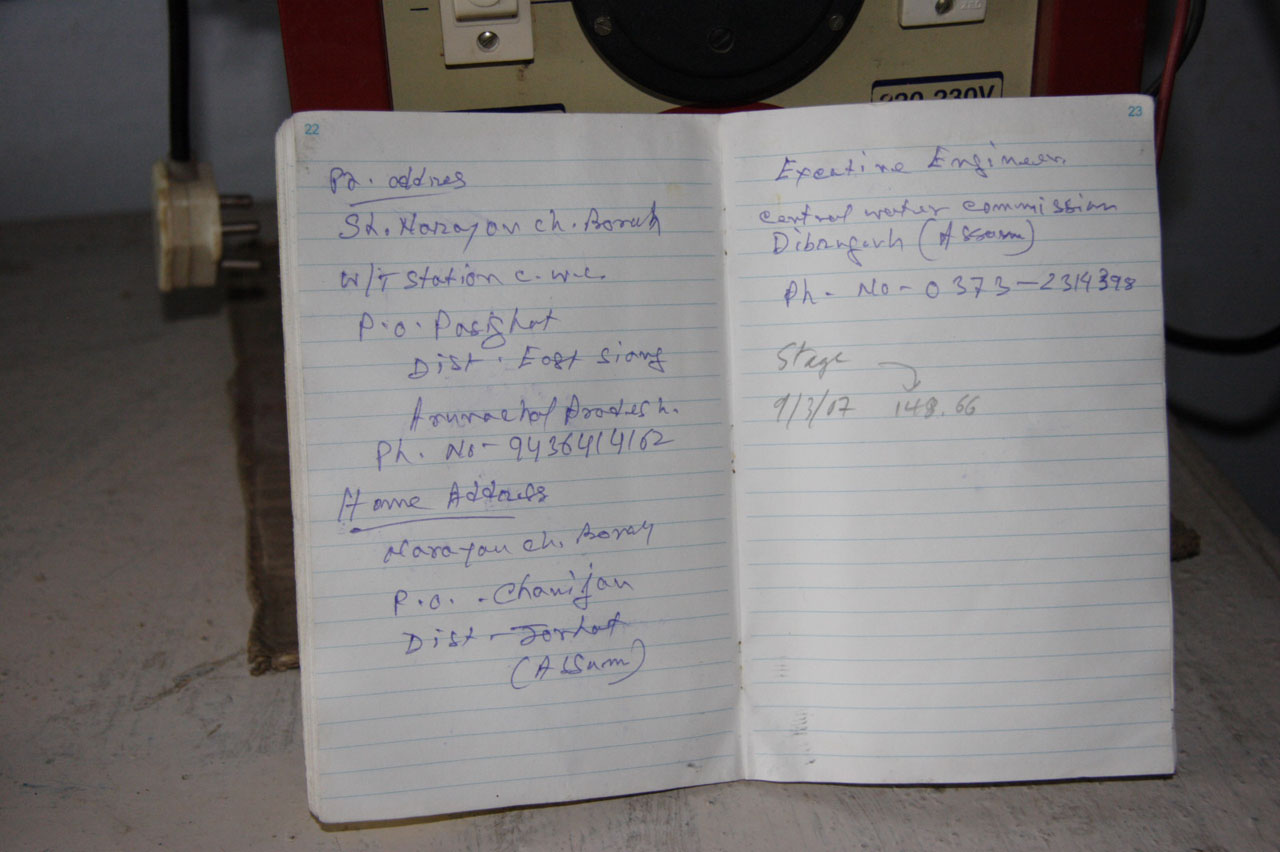 220-230V
22
Pr. addres
St. Narayan ch. Borah
W/T Station C.W.C.
P.O. Pasighat
Dist. East Siang
Arunachal Pradesh.
Ph. No - 9436414162
Home Address
Narayan ch. Borah
P.O. - Chanijan
Dist - Jorhat
(Assam)
23
Executine Engineer.
central water commission
Dibrugarh (Assam)
Ph - No - 0373-2314398
Stage
9/3/07 148.66